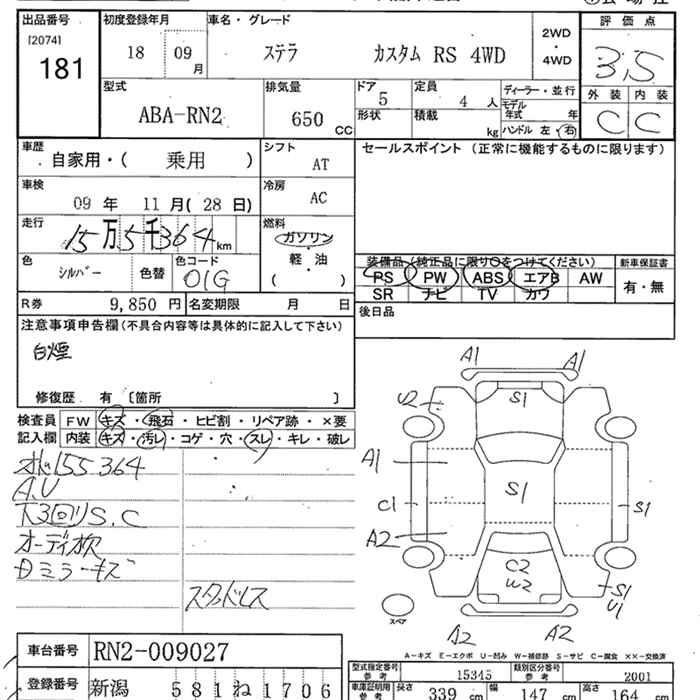 出品番号 初度登録年月 車名・グレード 評価点
[2074]
181
18 09 月 ステラ カスタム RS 4WD
2WD
・
4WD
3,5
外装 内装
C C
型式 排気量 ドア 定員 ディーラー・並行
ABA-RN2 650 CC 5 4 人
モデル年式 年
形状 積載 kg ハンドル 左・右
車歴 シフト セールスポイント (正常に機能するものに限ります)
自家用・( 乗用 ) AT
車検 冷房
09 年 11 月( 28 日) AC
走行 燃料
15万5千364 km ガソリン
軽・油
( )
色 シルバー 色替 色コード 01G
装備品 (純正品に限り○をつけてください) 新車保証書
PS PW ABS エアB AW 有・無
SR ナビ TV カワ
R券 9,850 円 名変期限 月 日
後日品
注意事項申告欄(不具合内容等は具体的に記入して下さい)
白煙
修復歴 有〔箇所 〕
検査員 FW キズ・飛石・ヒビ割・リペア跡・×要
記入欄 内装 キズ・汚レ・コゲ・穴・スレ・キレ・破レ
155364
A.U
下3回りS.C
オーディオ欠
Dミラーキズ
スタッドレス
A1 A1
U2 S1
A1
C1 S1 S1
A2
C2
W2
S1
U1
スペア
A2 A2
A-キズ E-エクボ U-凹み W-補修跡 S-サビ C-腐食 ××-交換済
車台番号 RN2-009027
型式指定番号 参考 15345 類別区分番号 参考 2001
登録番号 新潟 581ね1706
車庫証明用 参考 長さ 339 cm 幅 147 cm 高さ 164 cm